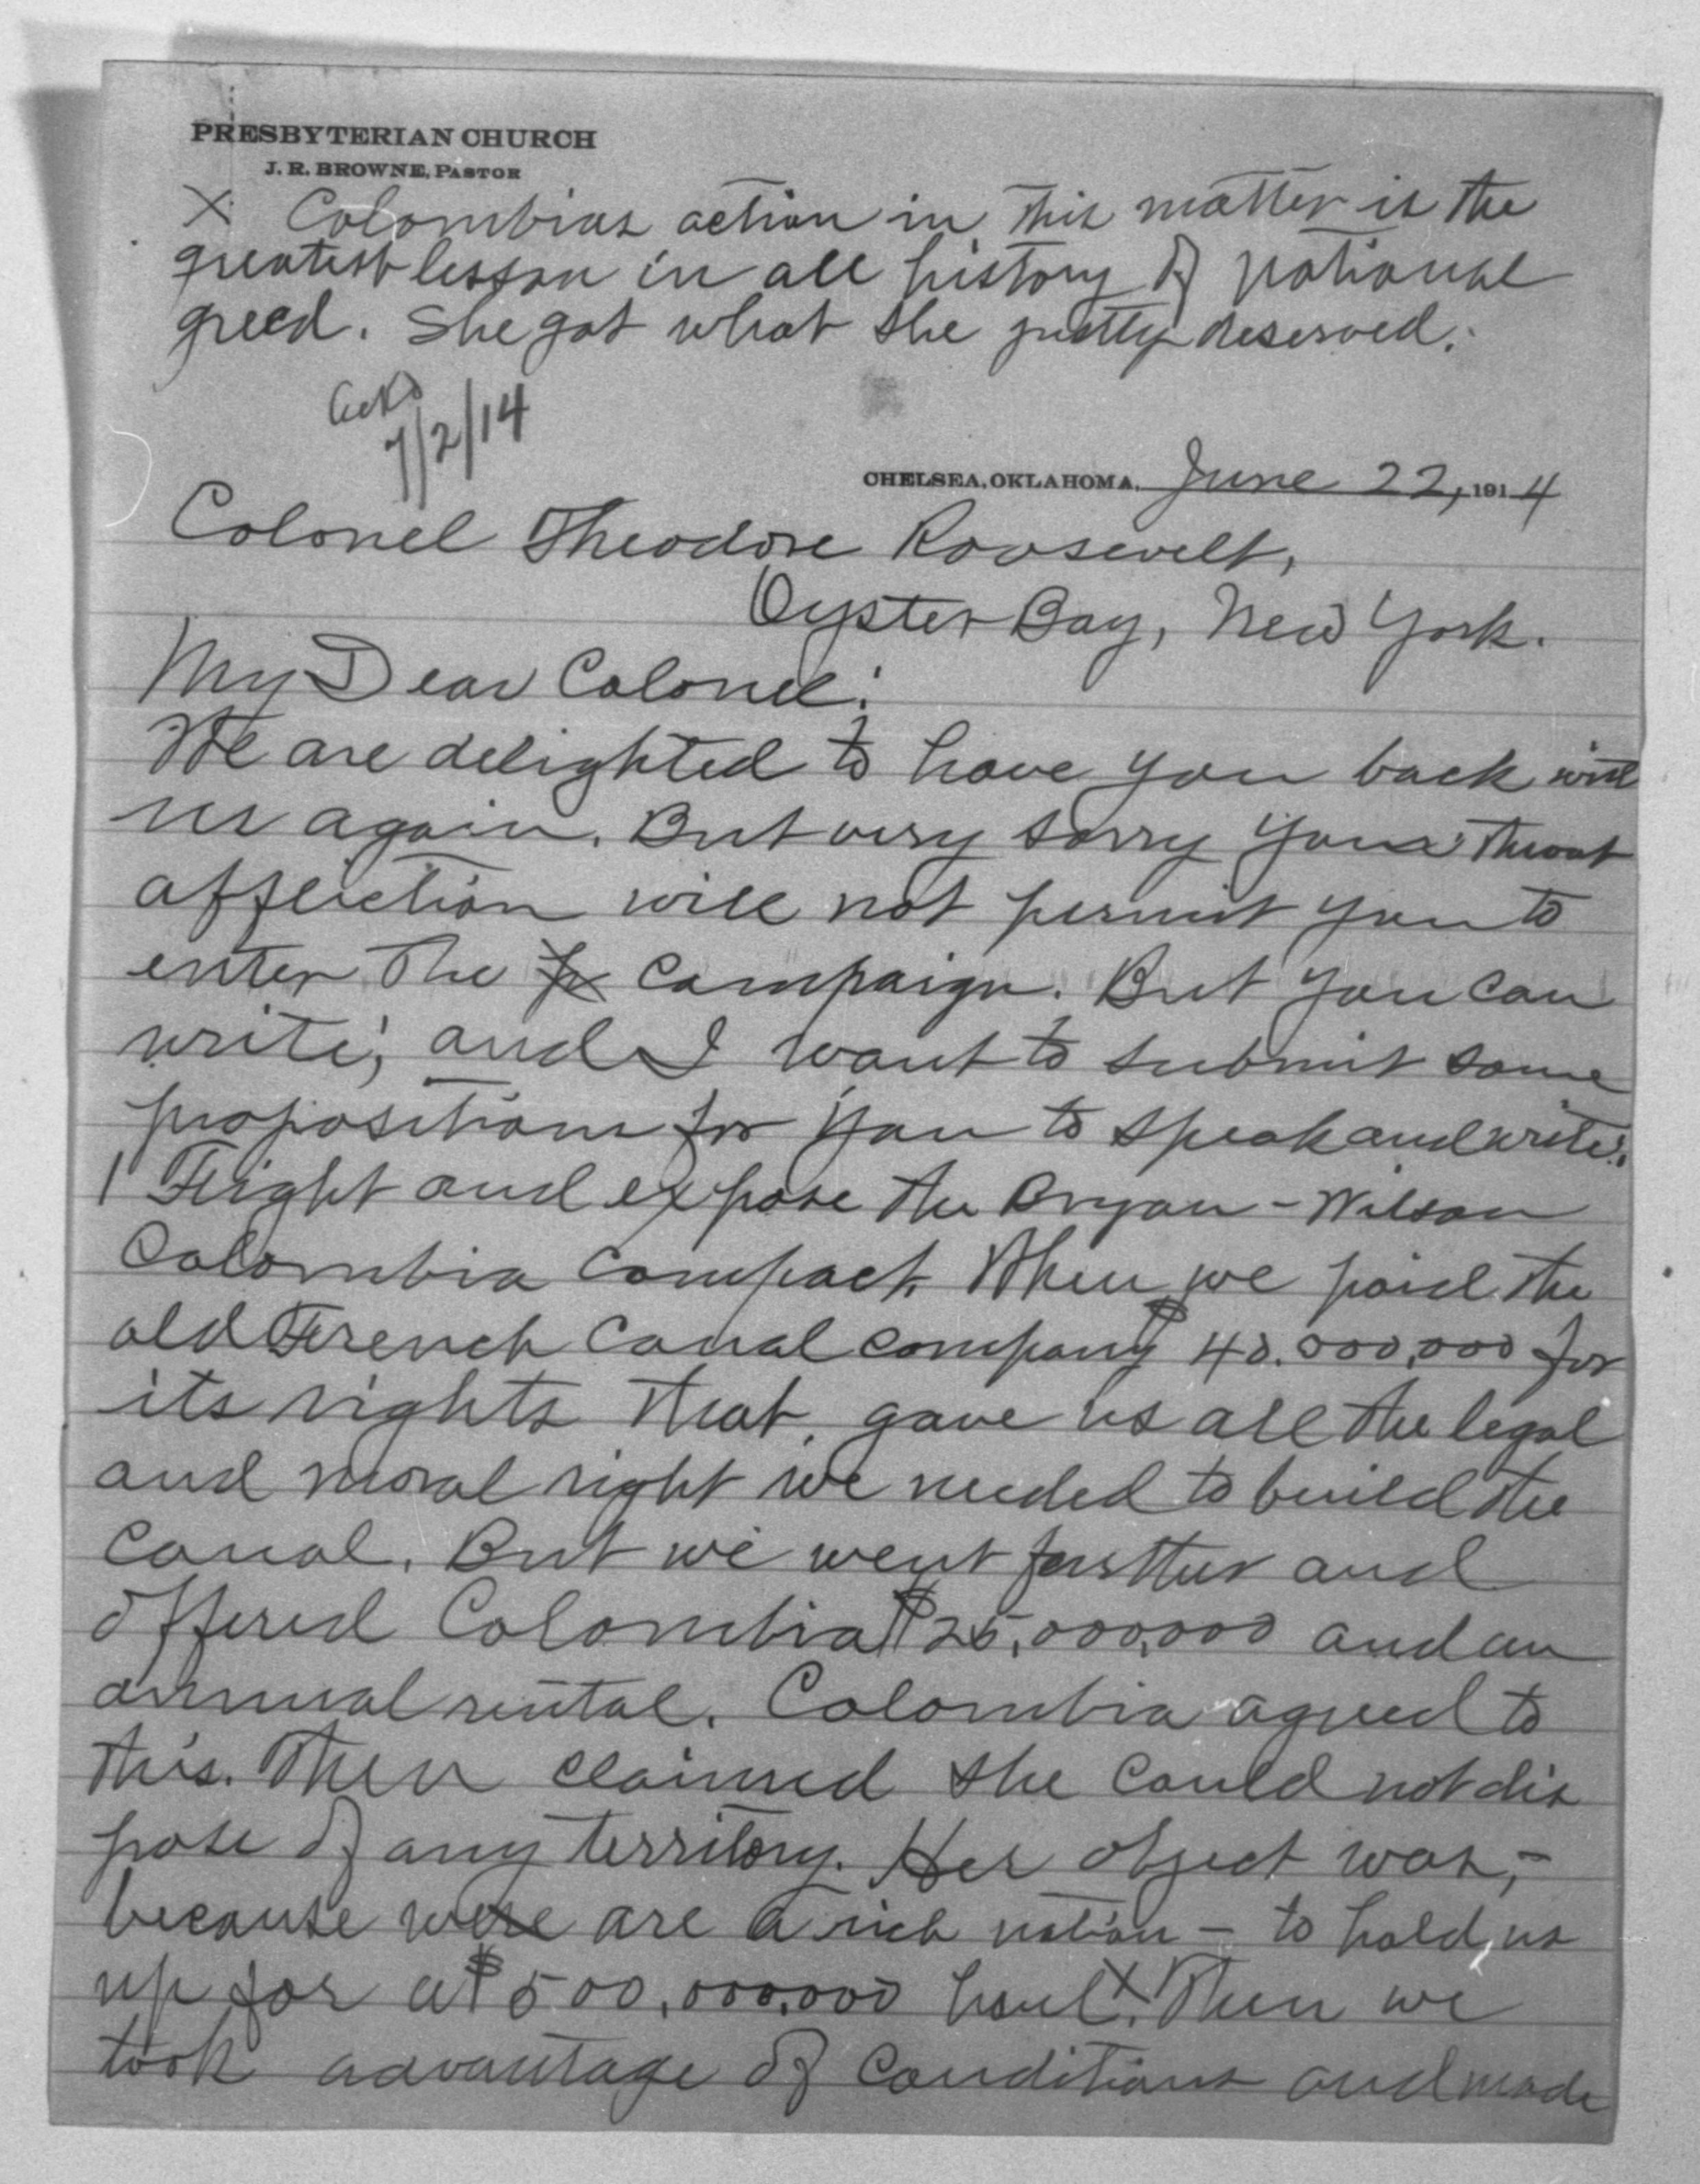 PRESBYTERIAN CHURCH
J. R. BROWNE, PASTOR
X Colombias action in this matter is the
greatest lesson in all history of national
greed. She got what she justly deserved.
Ackd
7/2/14
CHELSEA, OKLAHOMA, June 22, 1914
Colonel Theodore Roosevelt,
Oyster Bay, New York.
My Dear Colonel:
We are delighted to have you back with
us again. But very sorry your throat
affliction will not permit you to
enter the campaign. But you can
write; and I want to submit some
propositions for you to speak and write:
1 Fight and expose the Bryan-Wilson
Colombia compact. When we paid the
old French Canal company $40.000,000 for
its rights that gave us all the legal
and moral right we needed to build the
Canal. But we went further and
offered Colombia $25,000,000 and an
annual rental. Colombia agreed to
this. Then claimed she could not dis
pose of any territory. Her object was,-
because we are a rich nation - to hold us
up for a $500,000,000 haul X. Then we
took advantage of conditions and made